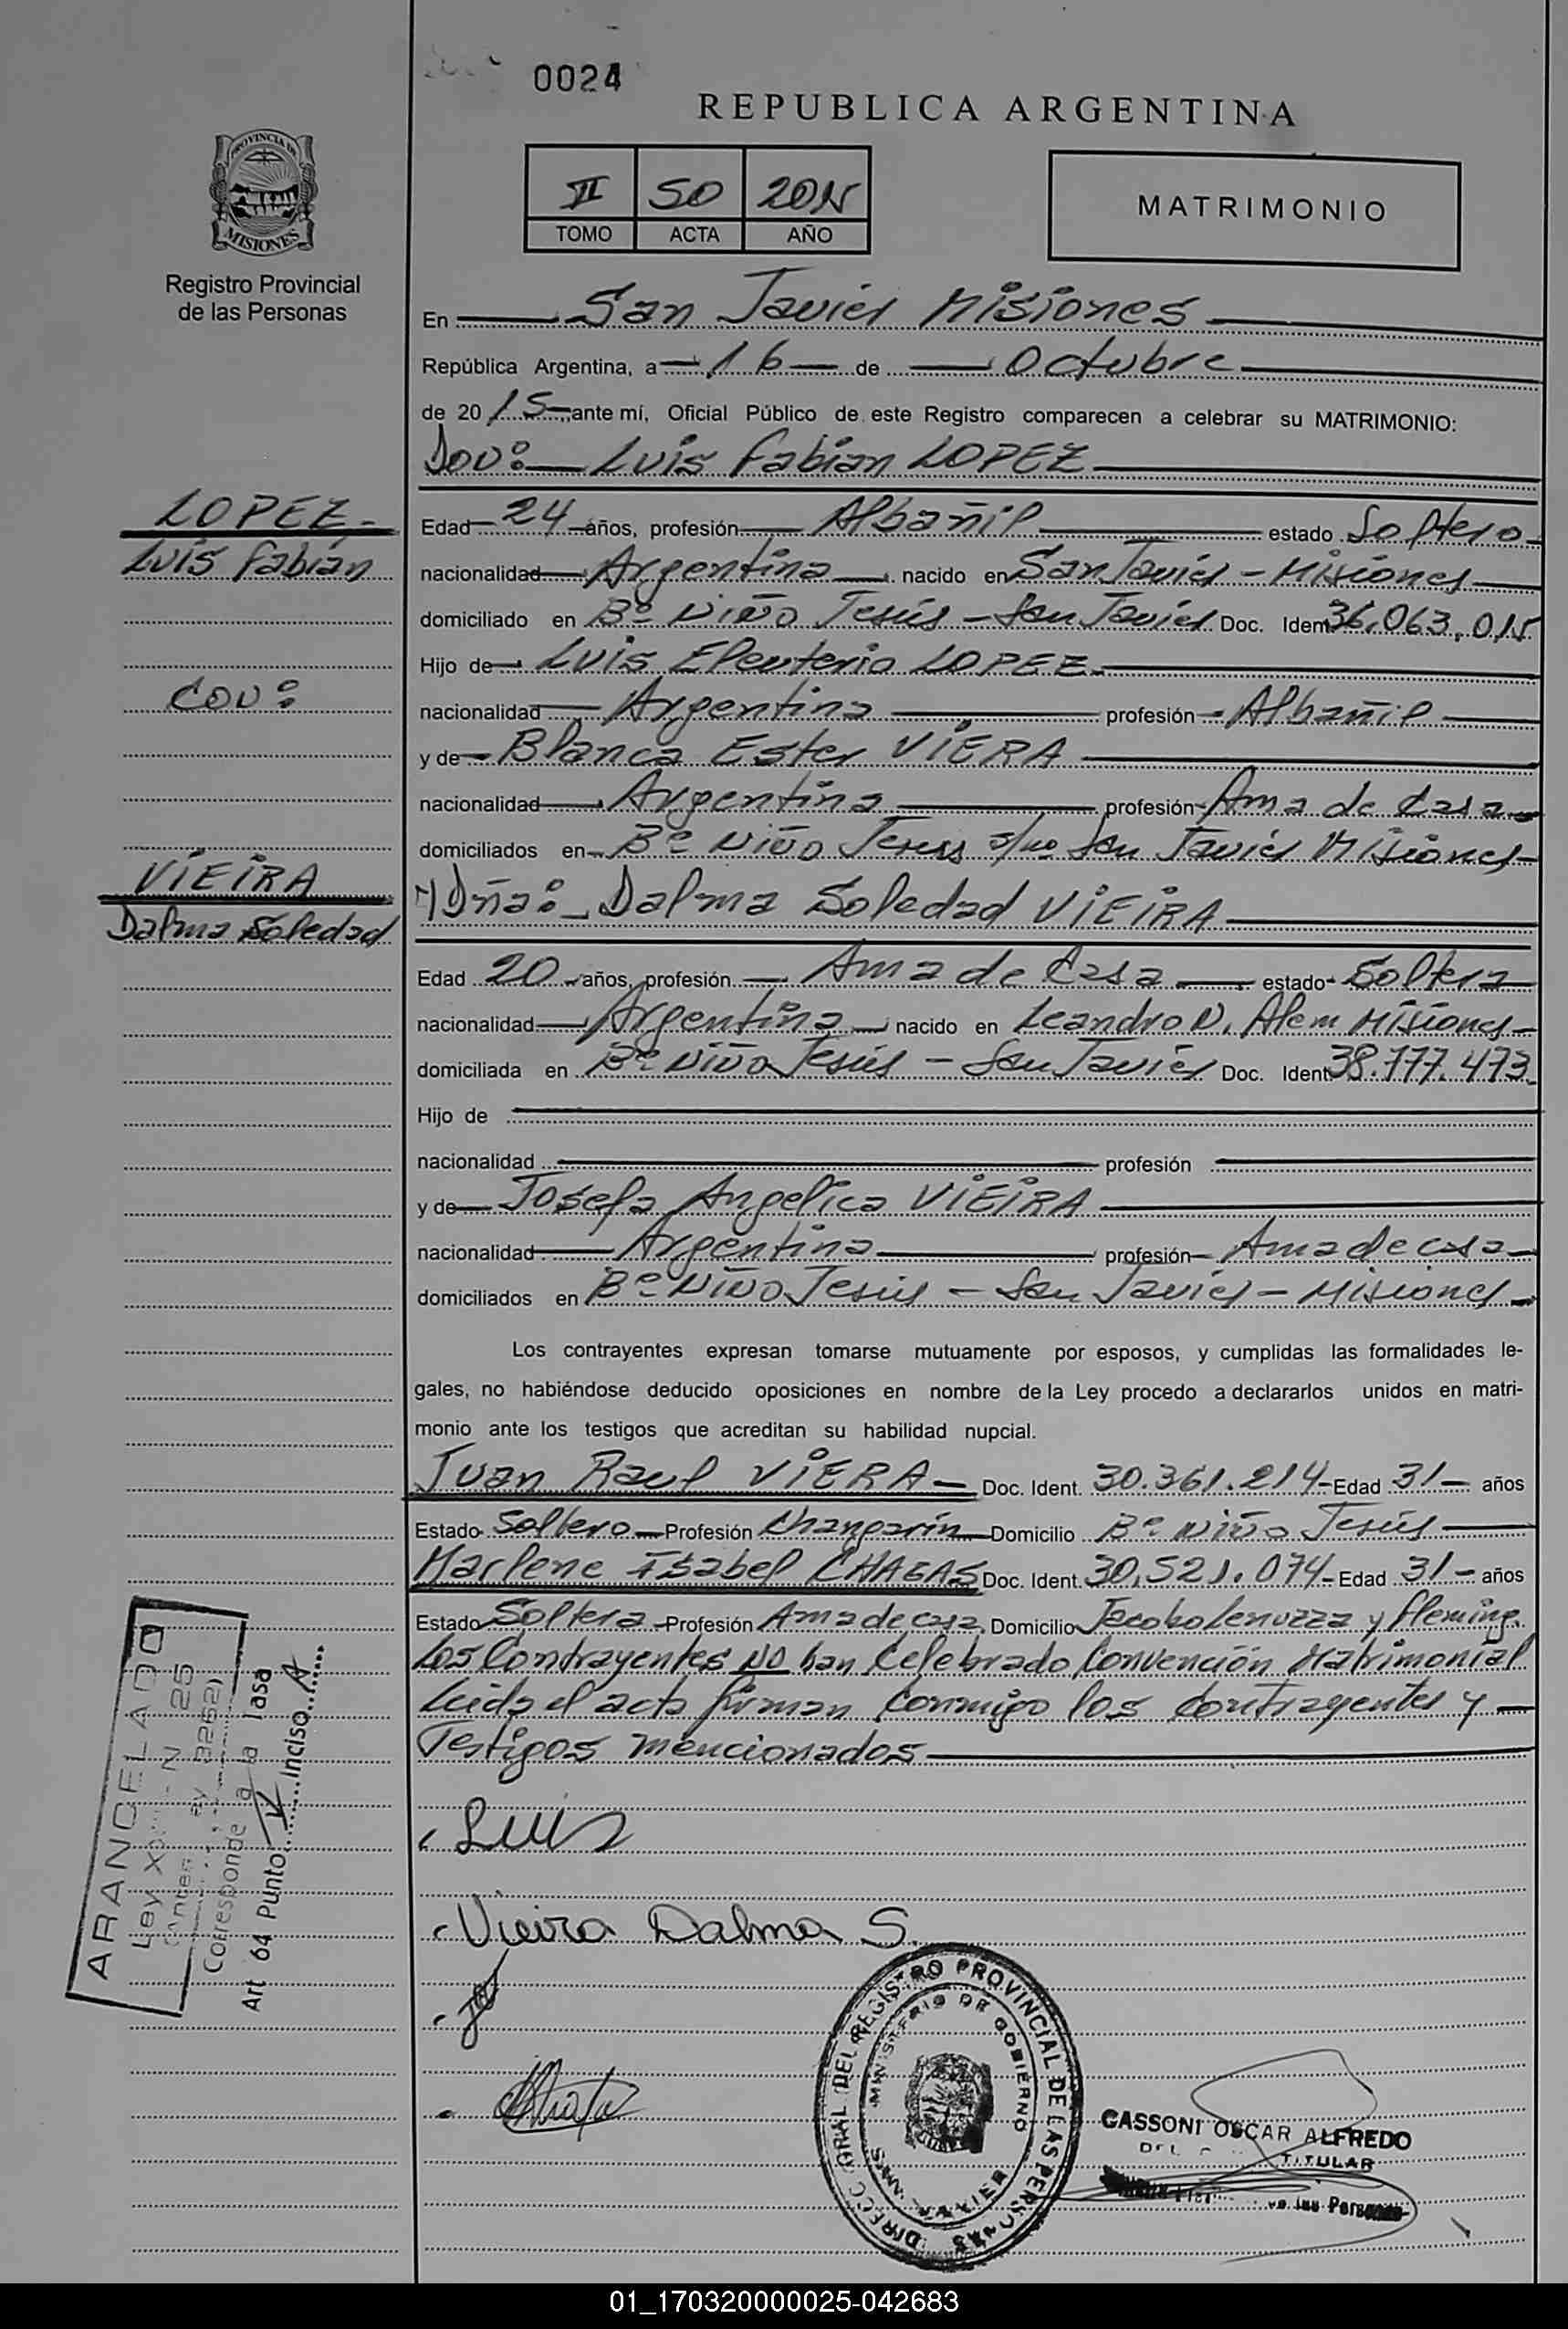 0024
REPUBLICA ARGENTINA
PROVINCIA DE
MISIONES
Registro Provincial
de las Personas
II 50 2015
TOMO ACTA AÑO
MATRIMONIO
En San Javier Misiones
República Argentina, a 16 de Octubre
de 2015 ante mí, Oficial Público de este Registro comparecen a celebrar su MATRIMONIO:
Don: Luis Fabian LOPEZ
LOPEZ
Luis Fabian
Con:
VIEIRA
Dalma Soledad
Edad 24 años, profesión Albañil estado Soltero
nacionalidad Argentina nacido en San Javier - Misiones
domiciliado en Bº Niño Jesús - San Javier Doc. Ident 36.063.015
Hijo de Luis Eleuterio LOPEZ
nacionalidad Argentina profesión Albañil
y de Blanca Ester VIERA
nacionalidad Argentina profesión Ama de Casa
domiciliados en Bº Niño Jesus s/nº San Javier Misiones
y Dña: Dalma Soledad VIEIRA
Edad 20 años, profesión Ama de Casa estado Soltera
nacionalidad Argentina nacido en Leandro N. Alem Misiones
domiciliada en Bº Niño Jesús - San Javier Doc. Ident 38.777.473
Hijo de
nacionalidad profesión
y de Josefa Angelica VIEIRA
nacionalidad Argentina profesión Ama de casa
domiciliados en Bº Niño Jesús - San Javier - Misiones
Los contrayentes expresan tomarse mutuamente por esposos, y cumplidas las formalidades le-
gales, no habiéndose deducido oposiciones en nombre de la Ley procedo a declararlos unidos en matri-
monio ante los testigos que acreditan su habilidad nupcial.
Juan Raul VIERA Doc. Ident. 30.361.214 Edad 31 años
Estado Soltero Profesión Changarín Domicilio Bº Niño Jesús
Marlene Isabel CHAGAS Doc. Ident. 30.521.074 Edad 31 años
Estado Soltera Profesión Ama de casa Domicilio Jacobo Lenuzza y Fleming.
Los Contrayentes NO han Celebrado Convención Matrimonial
Leida el acta firman conmigo los contrayentes y
Testigos mencionados
ARANCELADO
Ley
Corresponde a la Tasa
Art 64 Punto V Inciso A
Luis
Vieira Dalma S.
REGISTRO PROVINCIAL DE LAS PERSONAS
MINISTERIO DE GOBIERNO
GASSONI OSCAR ALFREDO
TITULAR
01_170320000025-042683